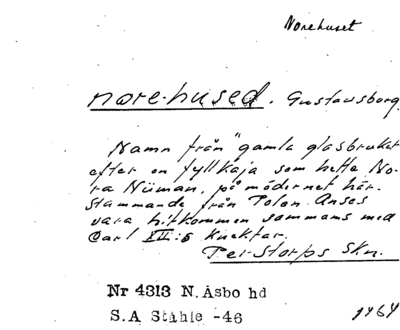 Norehuset
nore-hused. Gustavsborg.
Namn från "gamla glasbruket
efter en fyllkaja som hette No-
ra Nüman, på mödernet här-
stammande från Polen. Anses
vara hitkommen sammans med
Carl XII:s knektar.
Perstorps Skn.
Nr 4313 N. Åsbo hd
S.A Ståhle -46